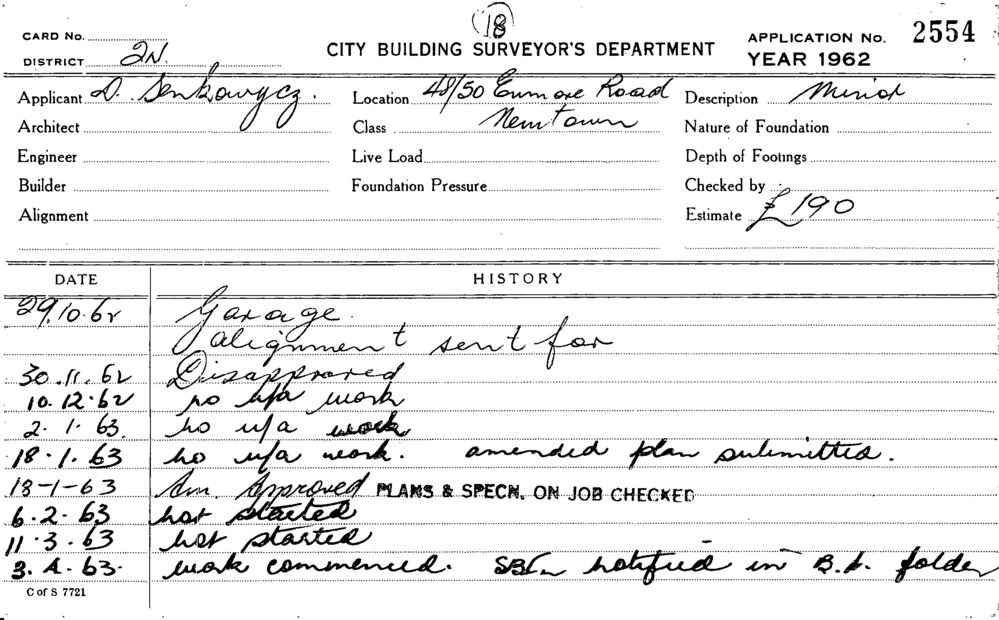 18
CARD No.
DISTRICT 2N.
CITY BUILDING SURVEYOR'S DEPARTMENT
APPLICATION No. 2554
YEAR 1962
Applicant D. Senkowycz. Location 48/50 Enmore Road Description Minor
Architect Class Newtown Nature of Foundation
Engineer Live Load Depth of Footings
Builder Foundation Pressure Checked by
Alignment Estimate £190
DATE HISTORY
29.10.62 Garage.
alignment sent for
30.11.62 Disapproved
10.12.62 no u/a work
2.1.63. no u/a work
18.1.63 no u/a work. amended plan submitted.
18-1-63 Am. Approved PLANS & SPECN. ON JOB CHECKED
6.2.63 not started
11.3.63 not started
3.4.63. work commenced. notified in folder
C of S 7721